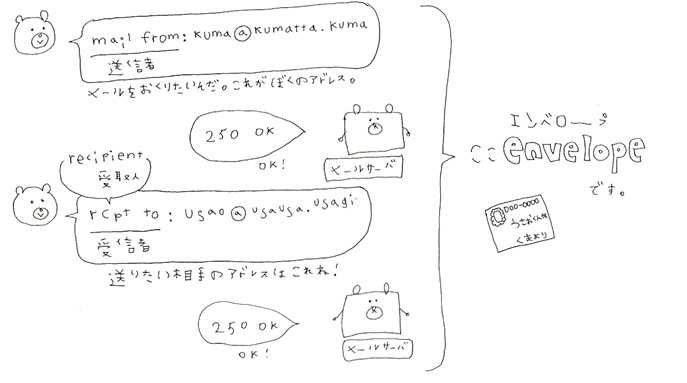 mail from: kuma@kumatta.kuma
送信者
メールをおくりたいんだ。これがぼくのアドレス。
250 OK
OK!
メールサーバ
recipient
受取人
rcpt to: usao@usausa.usagi
受信者
送りたい相手のアドレスはこれね!
250 OK
OK!
メールサーバ
エンベロープ
ここenvelope
です。
000-0000
うさおくんへ
くまより